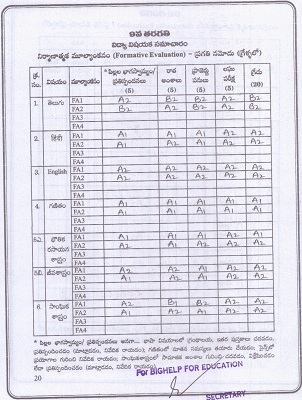 9వ తరగతి
విద్యా విషయక సమాచారం
నిర్మాణాత్మక మూల్యాంకనం (Formative Evaluation) – ప్రగతి నమోదు (గ్రేడ్లలో)
క్ర. సం. విషయం మూల్యాంకనం * పిల్లల భాగస్వామ్యం/ ప్రతిస్పందనలు (5) రాత అంశాలు (5) ప్రాజెక్టు పనులు (5) లఘు పరీక్ష (5) గ్రేడు (20)
1. తెలుగు FA1 A2 B2 B2 A2 B2
FA2 B2 A2 A2 A2 B2
FA3
FA4
2. హిందీ FA1 A1 A1 A1 A2 A1
FA2 A1 A2 A1 A1 A1
FA3
FA4
3. English FA1 A2 B2 A2 B2 A2
FA2 A2 A2 A2 A2 A2
FA3
FA4
4. గణితం FA1 A1 A1 A1 A2 A1
FA2 A1 A1 A2 A1 A1
FA3
FA4
5ఎ. భౌతిక రసాయన శాస్త్రం FA1 A1 A1 A2 A2 A1
FA2 A2 A1 A1 A2 A2
FA3
FA4
5బి. జీవశాస్త్రం FA1 A2 A1 A2 A1
FA2 A1 A1 A1 A2 A1
FA3
FA4
6. సాంఘిక శాస్త్రం FA1 A2 B1 A2
FA2 A2 A2 A1 A2 A2
FA3
FA4
20
For BIGHELP FOR EDUCATION
SECRETARY